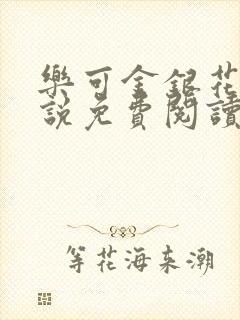 樂可金銀花
說免費閱讀
等花海来潮